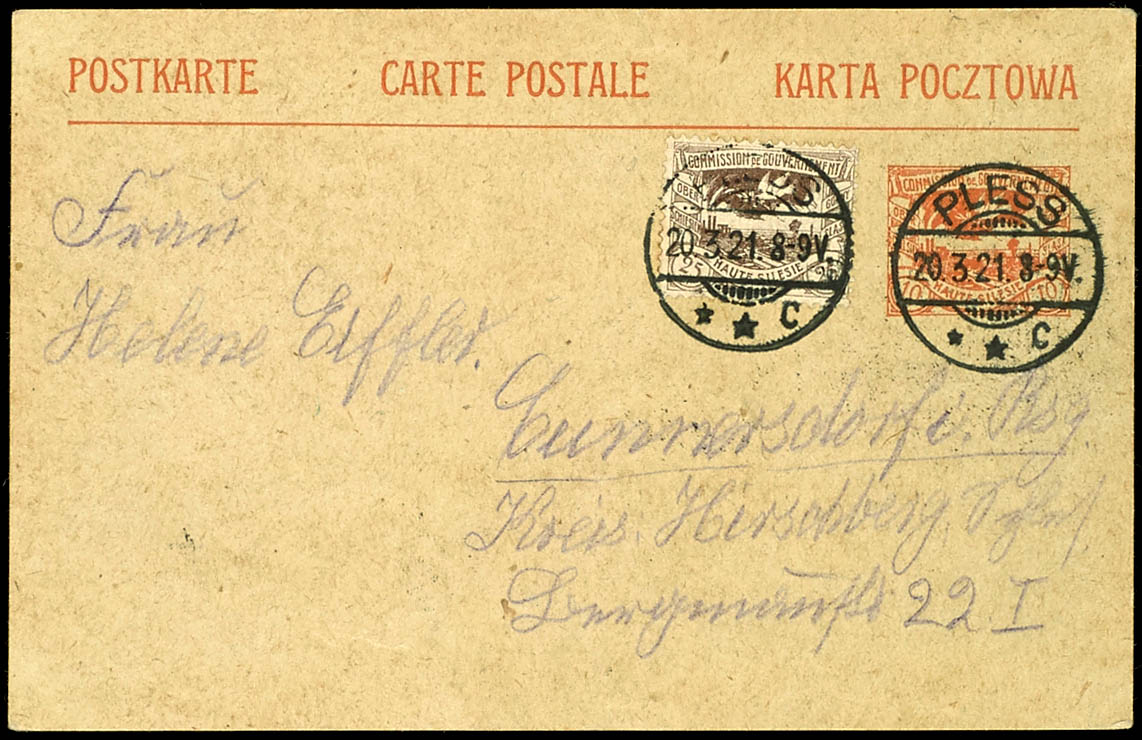 POSTKARTE CARTE POSTALE KARTA POCZTOWA
COMMISSION DE GOUVERNEMENT
OBER SCHLESIEN
25 HAUTE SILESIE 25
20.3.21. 8-9V.
* * C
COMMISSION DE GOUVERNEMENT
10 HAUTE SILESIE 10
PLESS
20.3.21. 8-9V.
* * C
Frau
Helene Eiffler.
Cunnersdorf i. Rsg
Kreis Hirschberg
22 I